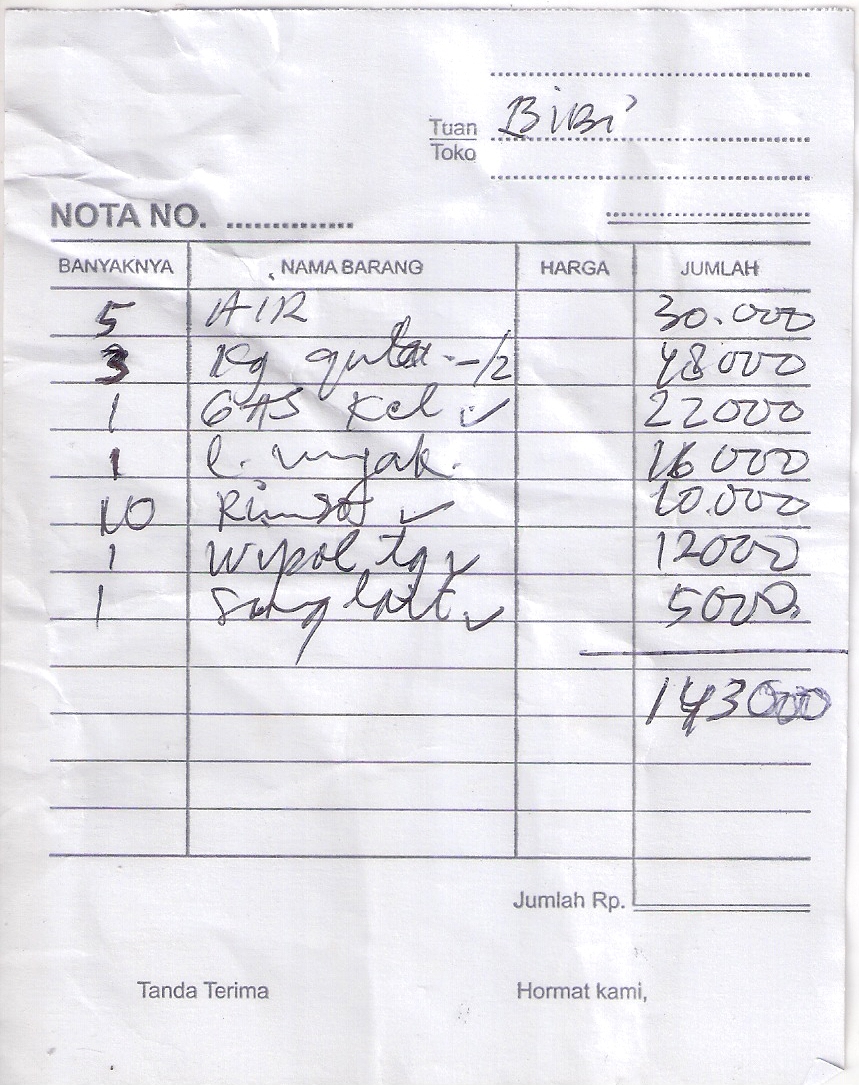 Tuan BiBi
Toko
NOTA NO. ...............
BANYAKNYA NAMA BARANG HARGA JUMLAH
5 AIR 30.000
3 Kg gula -1/2 48000
1 GAS Kcl ✓ 22000
1 l. 16000
10 Rinso ✓ 10.000
1 Wipol tg ✓ 12000
1 ✓ 5000
143000
Jumlah Rp.
Tanda Terima Hormat kami,